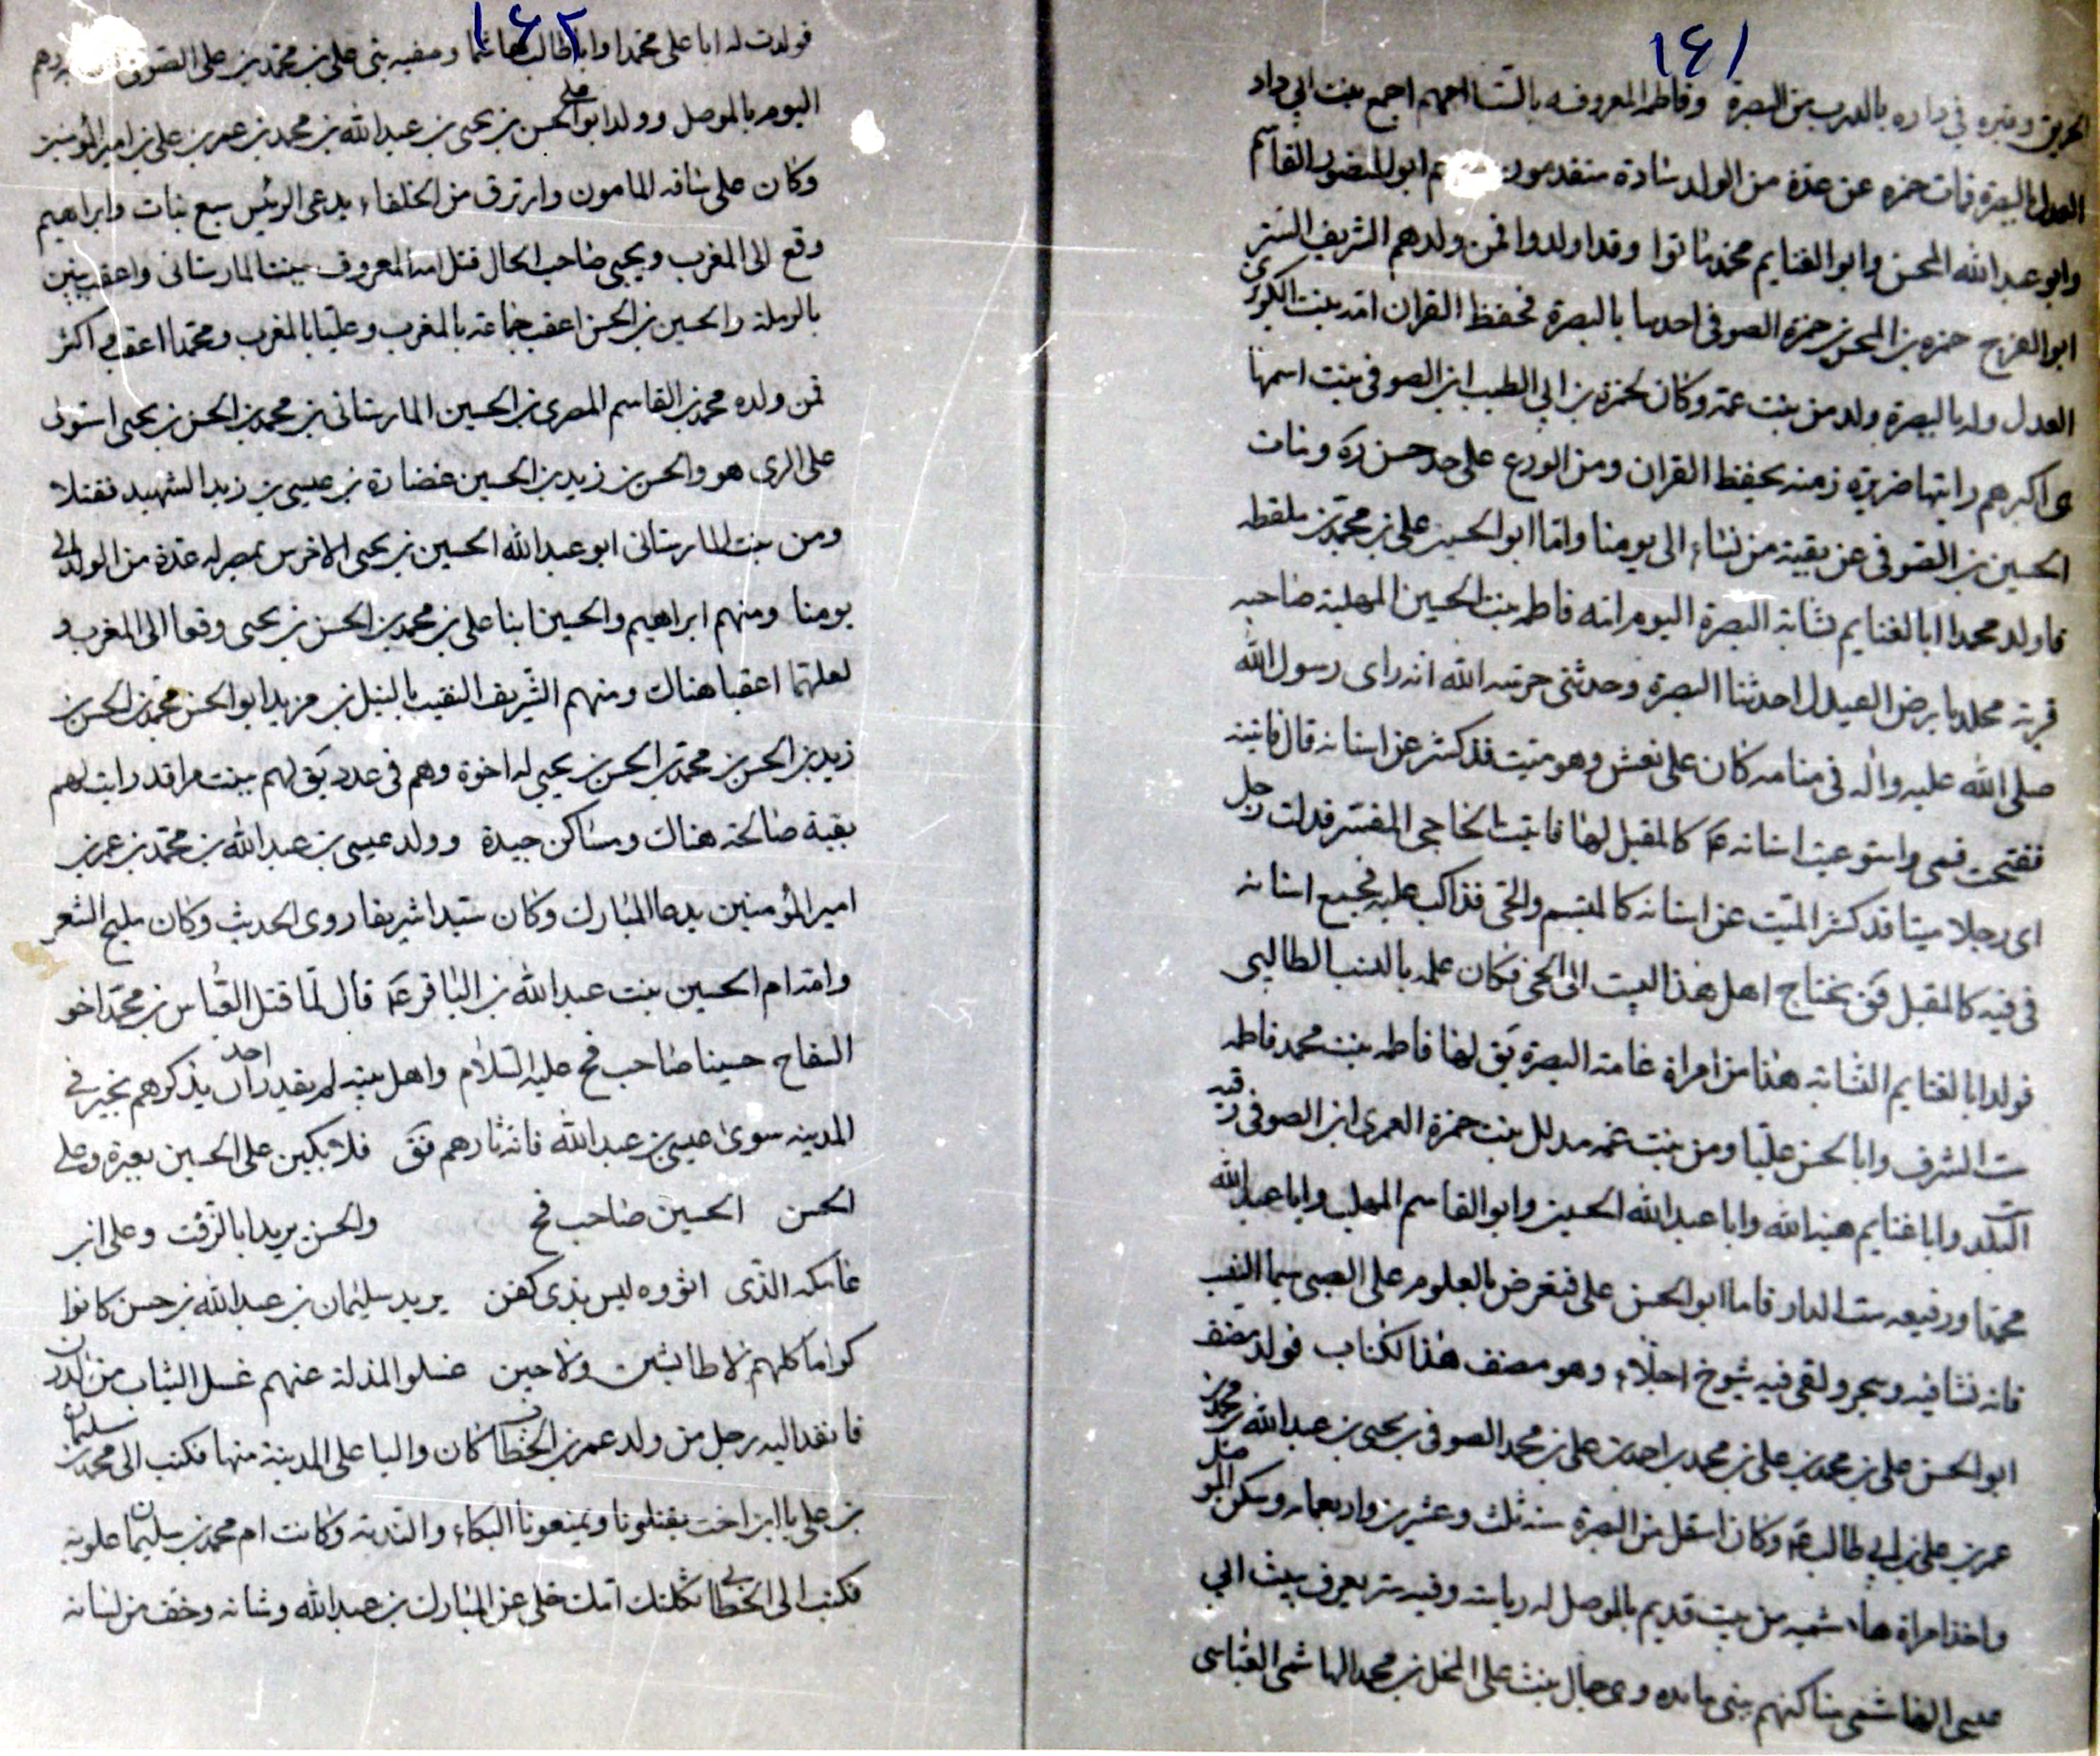 ١٤١
وقبره في داره بالدرب من البصرة وفاطمه المعروفه بالتسا امهم اجمع بنت ابي داد
العدل بالبصرة فات حمزه عن عدة من الولد سادة متقدمون ابو المنصور القاسم
وابو عبدالله المحسن وابو الغنايم محمد ماتوا وقد اولدوا فمن ولدهم الشريف الستر
ابو الفرج حمزه بن المحسن بن حمزة الصوفي احدها بالبصرة يحفظ القران امه بنت الكوزى
العدل وله بالبصرة ولد من بنت عمه وكان لحمزة بن ابي الطيب ابن الصوفي بنت اسمها
ى اكبرهم رايتها ضريرة زمنه تحفظ القران ومن الورع على حد حسن ره ومات
الحسين بن الصوفي عن بقية من نساء الى يومنا واما ابو الحسين علي بن محمد بن ملقطه
فاولد محمدا ابا الغنايم نسابة البصرة اليوم امه فاطمه بنت الحسين المهلبية صاحبه
قرية محلدبا برض العبدل احدثنا البصرة وحدثني حرسه الله انه راى رسول الله
صلى الله عليه واله في منامه كان على نعش وهو ميت قد كشر عن اسنانه قال فاتيته
ففتحت فمى واستوعبت اسنانه ع كالمقبل لها فاتيت الخاجي المفسر فدلت رجل
اى رجلا ميتا قد كشر الميت عن اسنانه كالمبتسم والحى قد اكب عليه فجمع اسنانه
في فيه كالمقبل فق يحتاج اهل هذا البيت الى الحى فكان علمه بالنسب الطالبي
فولد ابا الغنايم النسابه هذا من امراة عامة البصرة يق لها فاطمه بنت محمد فاطمه
ست الشرف وابا الحسن عليا ومن بنت عمه مدلل بنت حمزة العمرى ابن الصوفى رقيه
ست البلد وابا غنايم هبة الله وابا عبدالله الحسين وابو القاسم المهلب وابا عبدالله
محمدا ورفيعه ست الدار فاما ابو الحسن على فتعرض بالعلوم على الصبى سيما النسب
فانه نشا فيه وسجر ولقى فيه شيوخ اجلاء وهو مصنف هذا الكتاب فولد مصنف
ابو الحسن على بن محمد بن على بن محمد بن احمد بن على بن محمد الصوفى بن يحيى بن عبدالله بن محمد بن
عمر بن على بن ابي طالب ع وكان انتقل من البصرة سنه ثلث وعشرين واربعمائه وسكن الموصل
واخذ امراة هاشميه من بيت قديم بالموصل له رياسة وفيه ستر يعرف ببيت ابي
عيسى الهاشمى مساكنهم ببنى مايده وهى جمال بنت على المخل بن محمد الهاشمى العباسى
١٤٢
فولدت له ابا على محمدا وابا طالب هاشما وصفيه بنى على بن محمد بن على الصوفى
اليوم بالموصل وولد ابو الحسن على بن يحيى بن عبدالله بن محمد بن عمر بن على بن امير المؤمنين
وكان على ساقه المامون وارتزق من الخلفاء يدعى الرئيس سبع بنات وابراهيم
وقع الى المغرب ويحيى صاحب الحال قتل امه المعروف ببنت المارستانى واعقب بنين
بالرملة والحسين بن الحسن اعقب جماعة بالمغرب وعليا بالمغرب ومحمدا اعقب اكثر
فمن ولده محمد بن القاسم المصرى بن الحسين المارستانى بن محمد بن الحسن بن يحيى استولى
على الرى هو والحسن بن زيد بن الحسين غضارة بن عيسى بن زيد الشهيد فقتلا
ومن بنت المارستانى ابو عبدالله الحسين بن يحيى الاخرس بمصر له عدة من الولد الى
يومنا ومنهم ابراهيم والحسين ابنا على بن محمد بن الحسن بن يحيى وقعا الى المغرب و
لعلهما اعقبا هناك ومنهم الشريف النقيب بالنيل بن مزيد ابو الحسن محمد بن الحسن بن
زيد بن الحسن بن محمد بن الحسن بن يحيى له اخوة وهم فى عدد يق لهم بيت مراقد رايت لهم
بقية صالحة هناك ومساكن جيدة وولد عيسى بن عبدالله بن محمد بن عمر بن
امير المؤمنين يدعا المبارك وكان سيدا شريفا روى الحديث وكان مليح الشعر
وامه ام الحسين بنت عبدالله بن الباقر ع قال لما قتل العباس بن محمد اخو
السفاح حسينا صاحب فخ عليه السلام واهل بيته لم يقدر احد ان يذكرهم بخير فى
المدينه سوى عيسى بن عبدالله فانه ثارهم فق فلا بكين على الحسين بعبرة وعلى
الحسن الحسين صاحب فخ والحسن يريد ابا الزفت وعلى ابن
عاتكه الذى اثووه ليس بذى كفن يريد سليمان بن عبدالله بن حسن كانوا
كراما كلهم لا طائشين ولا جبن غسلوا المذلة عنهم غسل الثياب من الدرن
فانفد اليه رجل من ولد عمر بن الخطاب كان واليا على المدينة منها فكتب الى محمد بن سليمان
بن على يا ابن اخت يقتلونا ويمنعونا البكاء والندبة وكانت ام محمد بن سليمان علوية
فكتب الى الخطابى ثكلتك امك خلى عن المبارك بن عبدالله وشانه وخف من لسانه